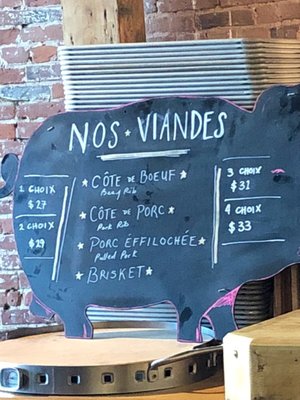 NOS ★ VIANDES
1 CHOIX
$27
2 CHOIX
$29
★ CÔTE DE BOEUF ★
Beef Rib
★ CÔTE DE PORC ★
Pork Rib
★ PORC EFFILOCHÉE ★
Pulled Pork
★ BRISKET ★
3 CHOIX
$31
4 CHOIX
$33